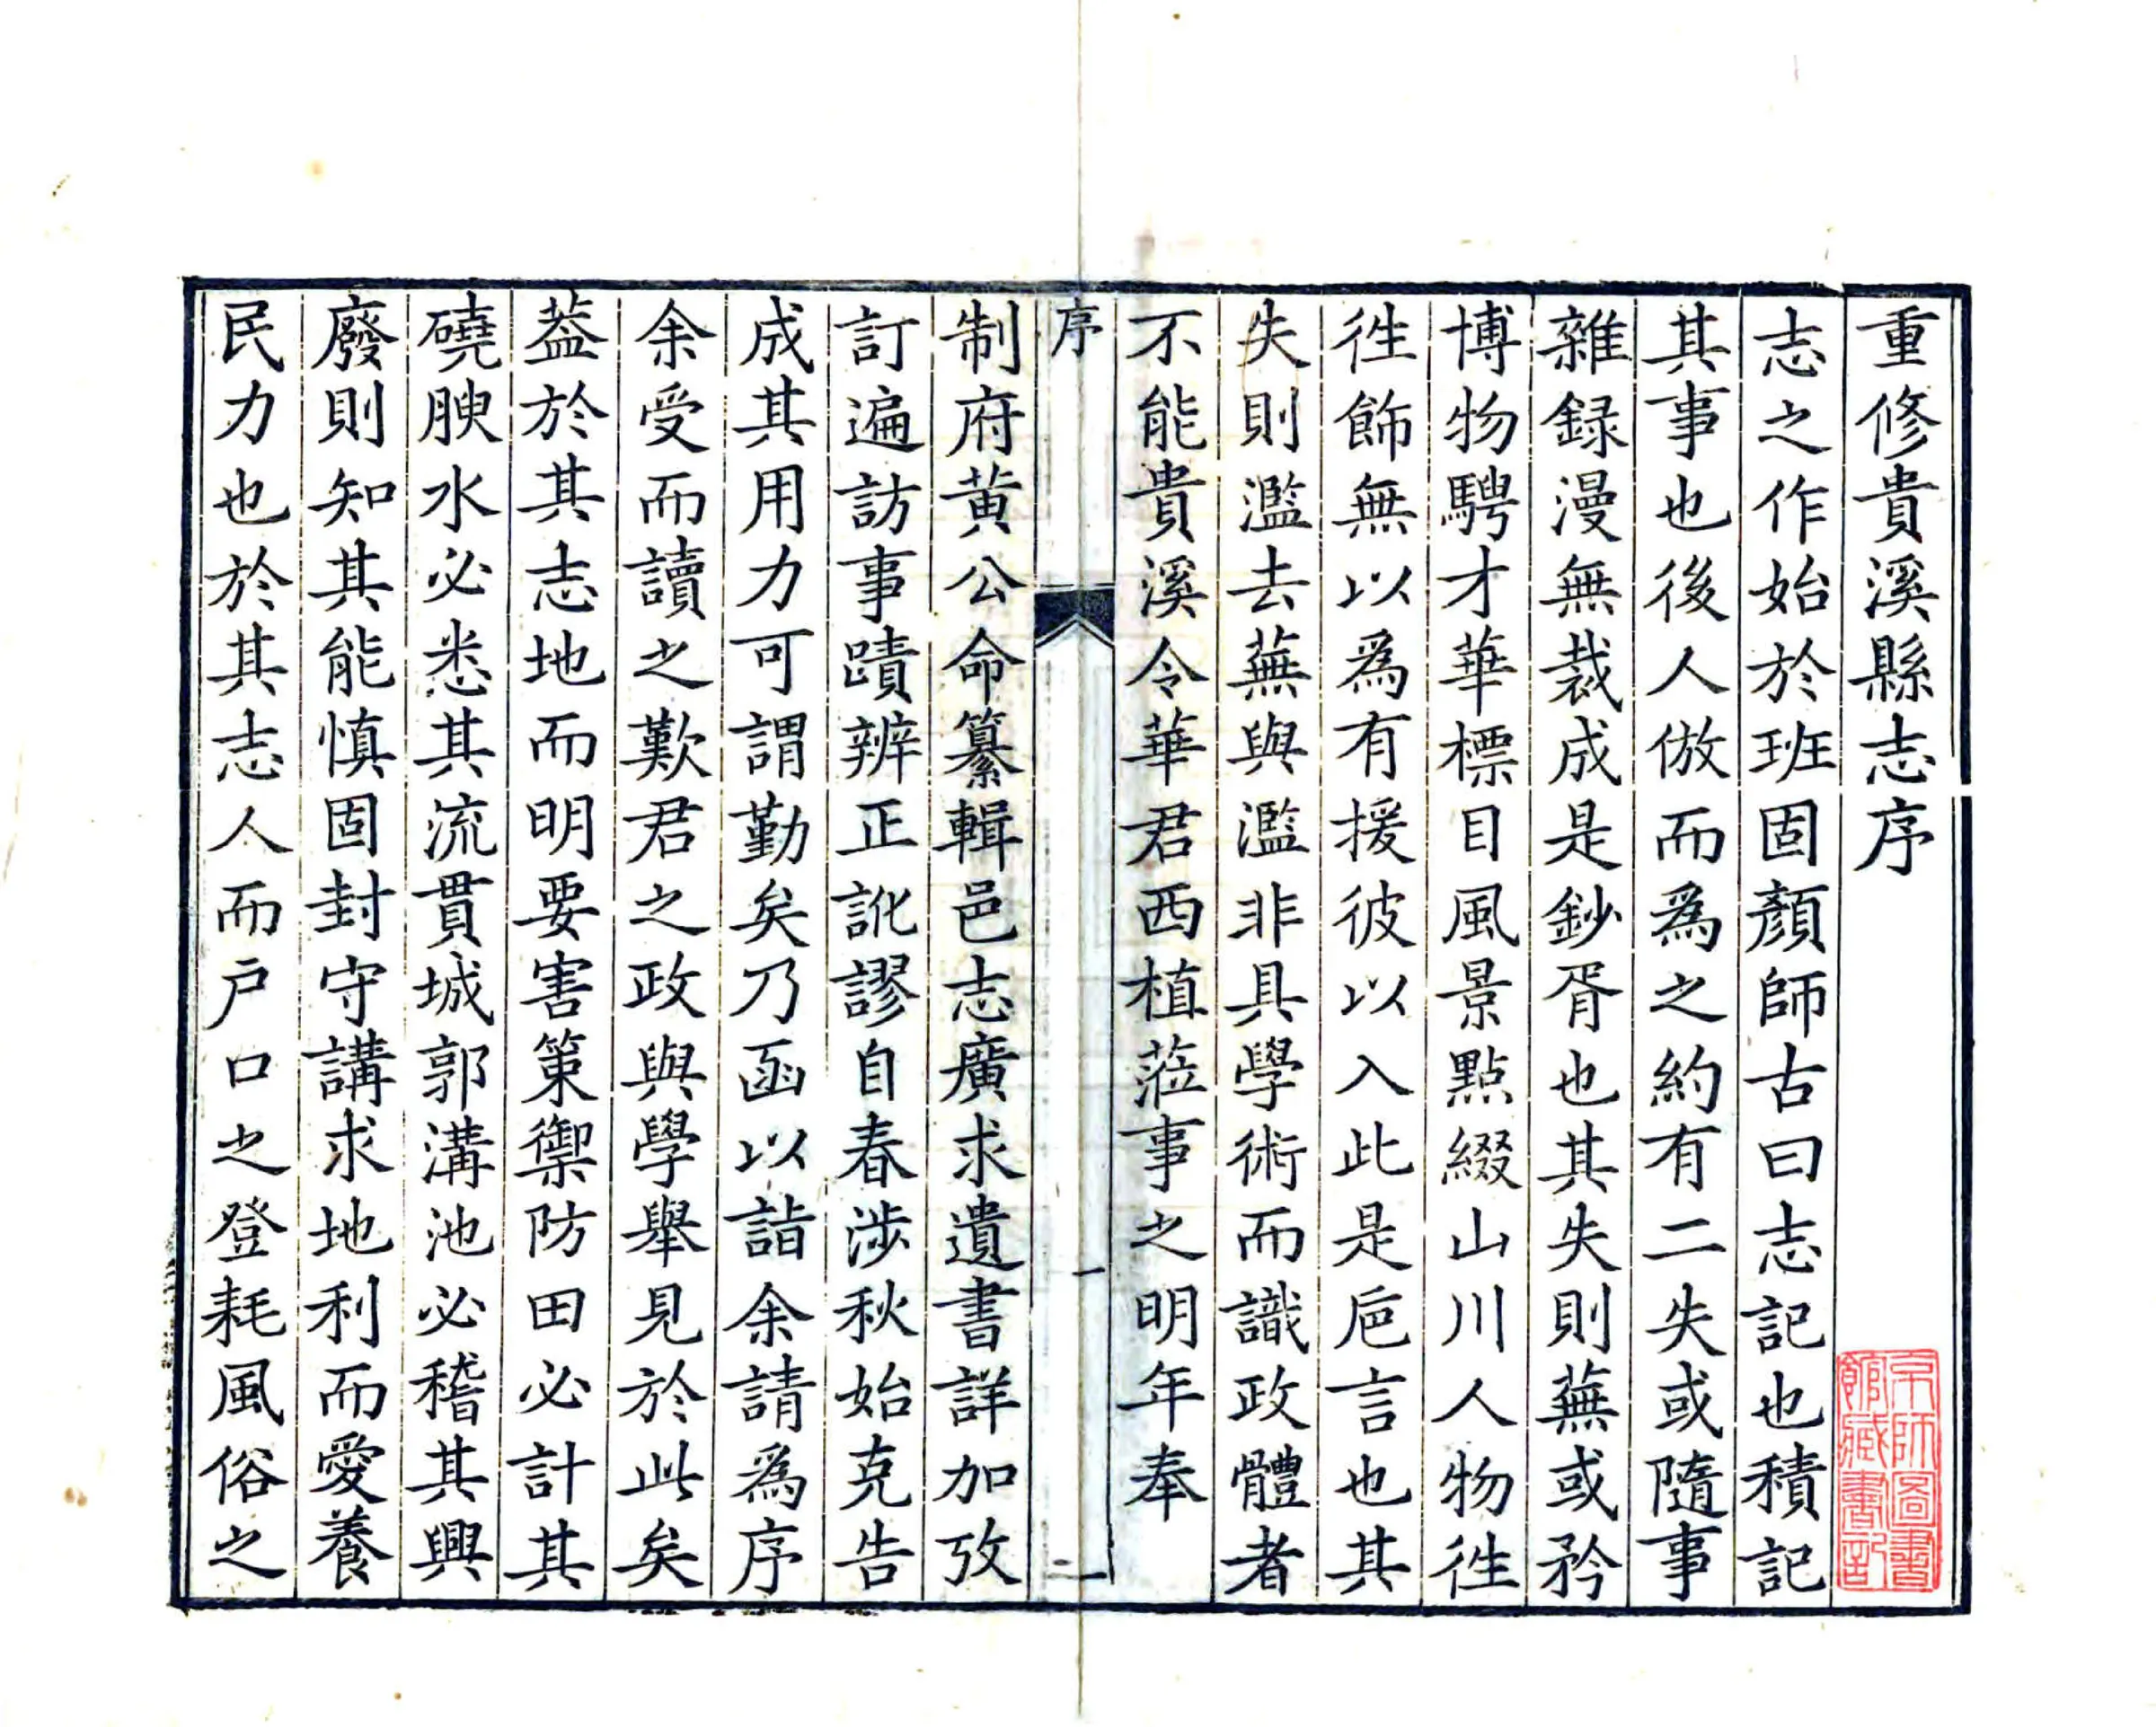 重修貴溪縣志序
志之作始於班固顏師古曰志記也積記
其事也後人倣而爲之約有二失或隨事
雜録漫無裁成是鈔胥也其失則蕪或矜
博物騁才華標目風景點綴山川人物徃
徃飾無以爲有援彼以入此是巵言也其
失則濫去蕪與濫非具學術而識政體者
不能貴溪令華君西植蒞事之明年奉
序
一
二
制府黄公命纂輯邑志廣求遺書詳加攷
訂遍訪事蹟辨正訛謬自春涉秋始克告
成其用力可謂勤矣乃函以詣余請爲序
余受而讀之歎君之政與學舉見於此矣
葢於其志地而明要害策禦防田必計其
磽腴水必悉其流貫城郭溝池必稽其興
廢則知其能慎固封守講求地利而愛養
民力也於其志人而户口之登耗風俗之
京師圖書
館藏書記